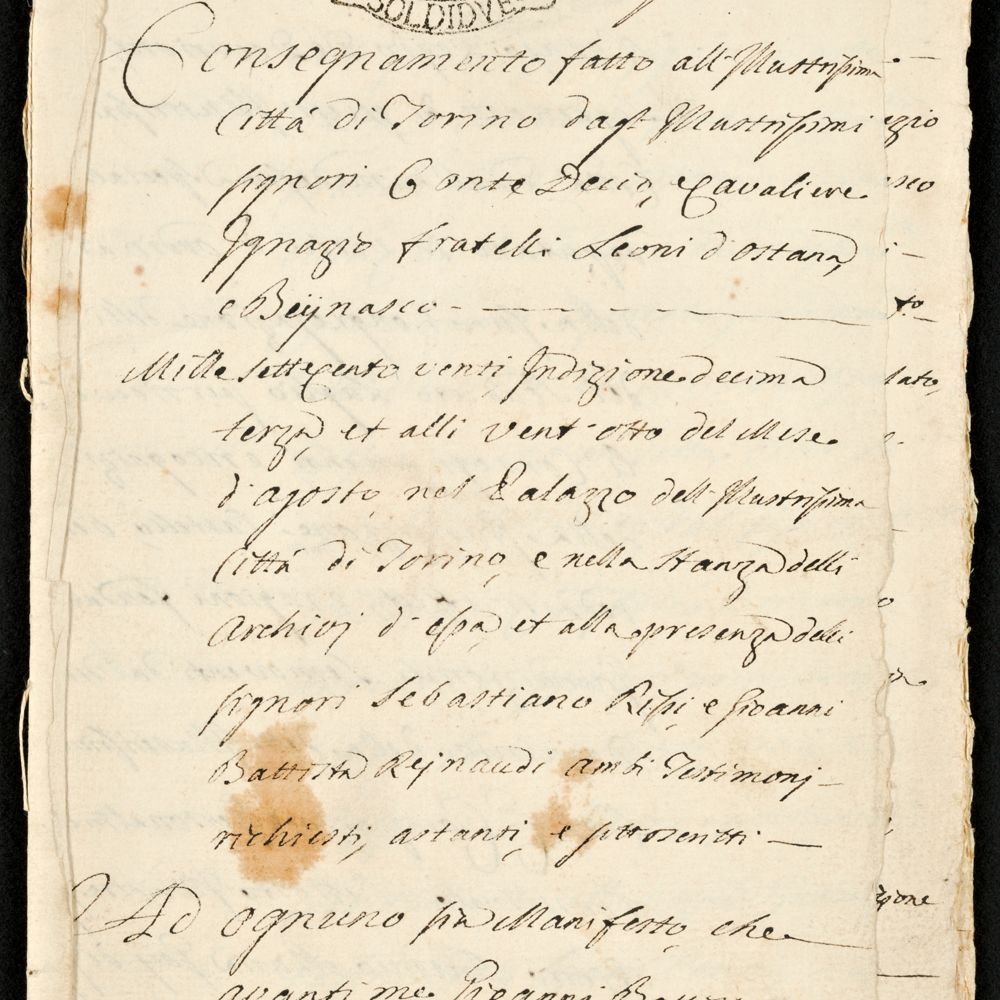 SOLDI DVE
Consegnamento fatto all' Illustrissima
Città di Torino dagl' Illustrissimi
signori Conte Decio, e Cavaliere
Ignazio fratelli Leoni d'ostana,
e Beijnasco
Mille settecento venti, Indizione decima
terza, et alli vent'otto del Mese
d'agosto, nel Palazzo dell' Illustrissima
Città di Torino, e nella stanza delli
Archivj d'essa, et alla presenza delli
signori Sebastiano Rissi, e Gioanni
Battista Reijnaudi ambi Testimonj
richiesti, astanti, e sottoscritti
Ad ognuno sia Manifesto, che
avanti me Gioanni